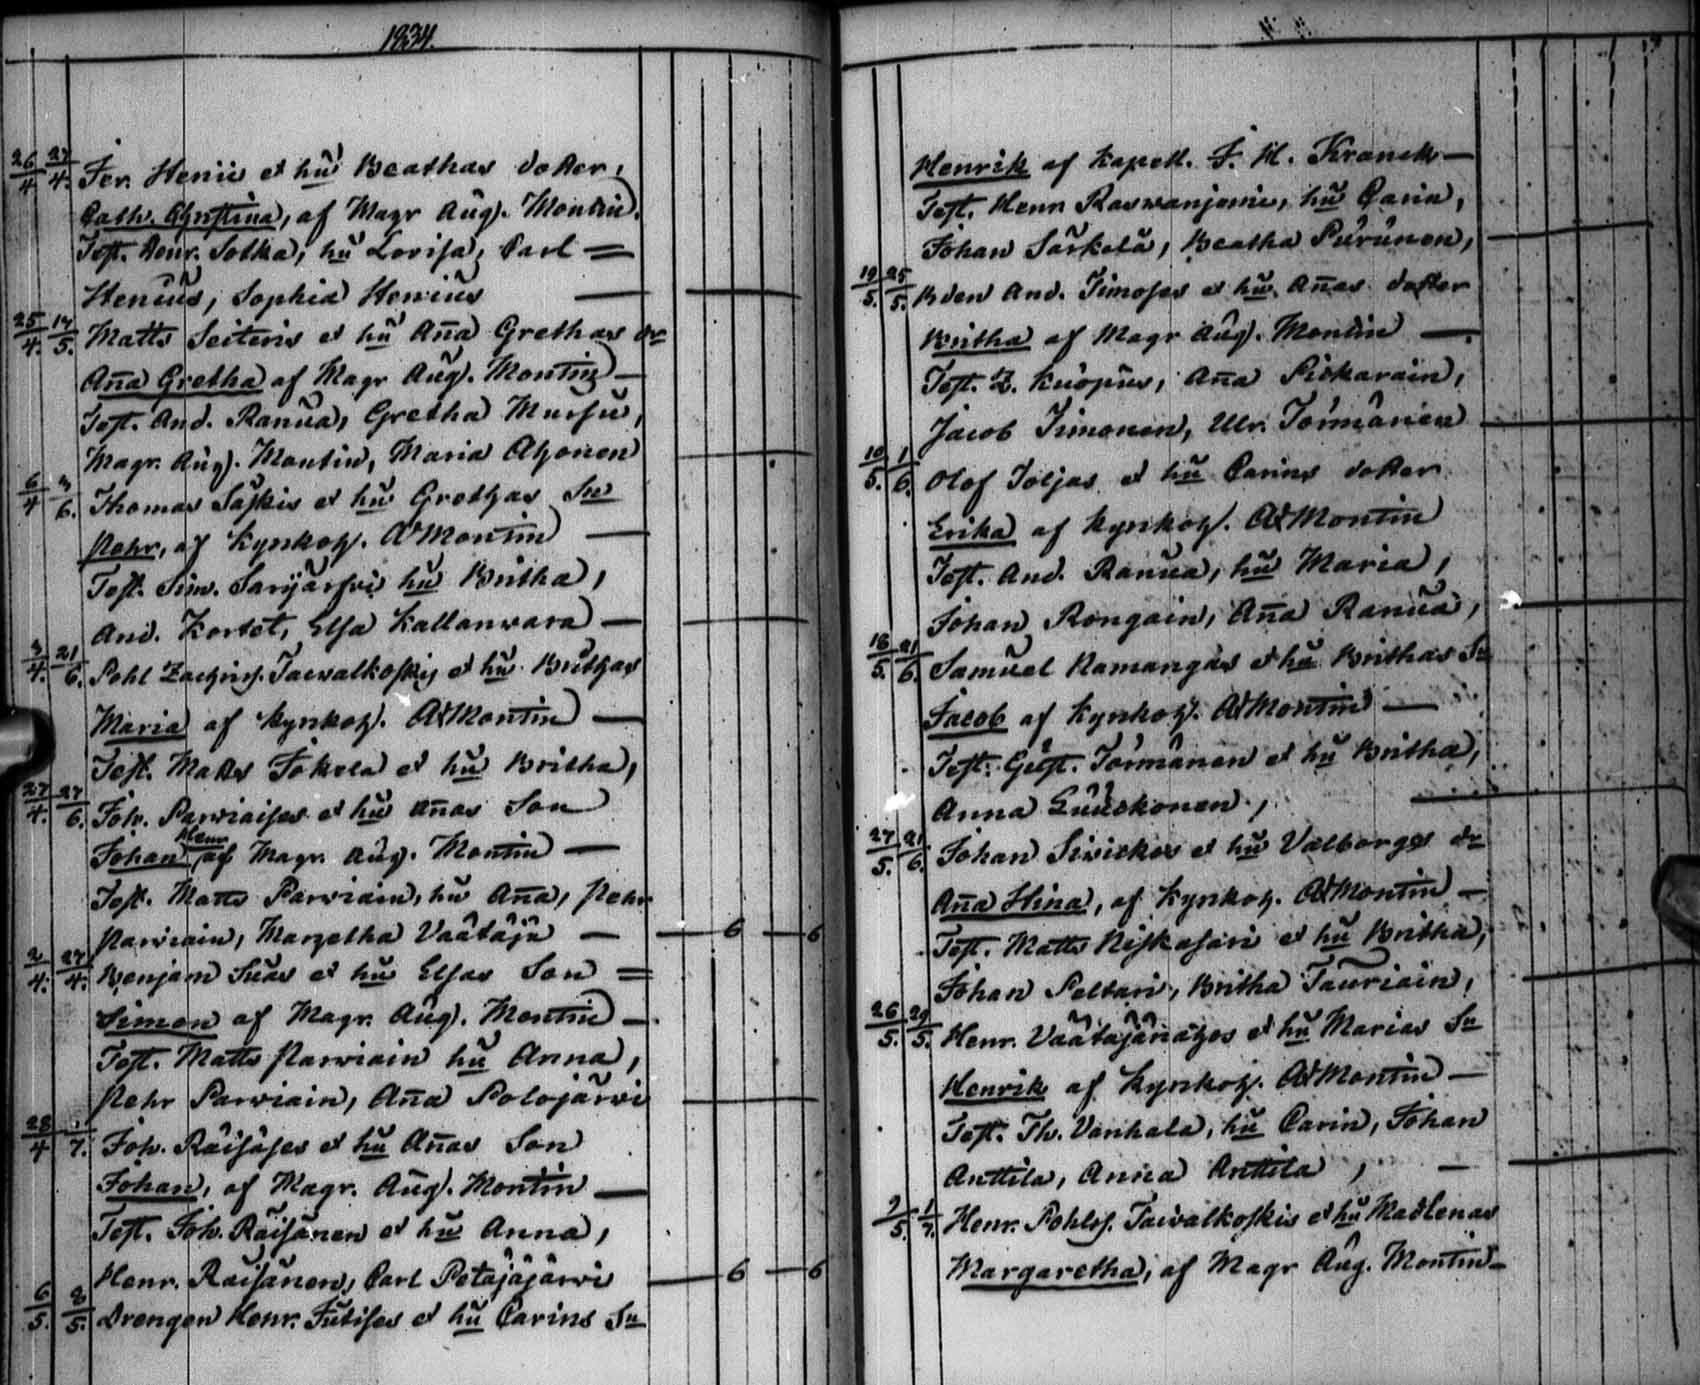 1834.
26/4 27/4. Fer. Henii et hũ Beathas dotter,
Cath. Christina, af Magr Aug. Montin.
Test. Henr. Sotka, hũ Lovisa, Carl =
Henius, Sophia Henius —
25/4. 14/5. Matts Seiteris et hũ Ana Grethas dr
Ana Gretha af Magr Aug. Montin —
Test. And. Ranua, Gretha Mursu,
Magr. Aug. Montin, Maria Ahonen
6/4 3/6. Thomas Saskis et hũ Grethas Sn
Pehr, af Kyrkoh. A Montin —
Test. Sim. Sarijärfvi hũ Britha,
And. Kortet, Elsa Kallanvara —
3/4. 21/6. Pohl Zachris. Taivalkoskis et hũ Brithas
Maria af Kyrkoh. AdMontin —
Test. Matts Jokela et hũ Britha,
27/4. 27/6. Joh. Parviaises et hũ Anas Son
Johan Henr af Magr. Aug. Montin —
Test. Matts Parviain, hũ Ana, Pehr
Parviain, Margetha Väätäjä — 6 — 6
2/4. 27/4. Benjam Suas et hũ Elsas Son =
Simon af Magr. Aug. Montin —
Test. Matts Parviain hũ Anna,
Pehr Parviain, Ana Polojärvi
28/4 /7. Joh. Räisäses et hũ Anas Son
Johan, af Magr. Aug. Montin —
Test. Joh. Räisänen et hũ Anna,
Henr. Räisänen, Carl Petäjäjärvi — 6 — 6
6/5. 8/5. Drengen Henr. Jutises et hũ Carins Sn
Henrik af Kapell. J. H. Kranck —
Test. Henr Rasvanjemi, hũ Carin,
Johan Särkelä, Beatha Purunen,
19/5. 25/5. Bden And. Timoses et hũ Anas dotter
Britha af Magr Aug. Montin —
Test. Z. Kuopus, Ana Piekarain,
Jacob Timonen, Ulr. Törmänen
10/5. 1/6. Olof Toljas et hũ Carins dotter
Erika af Kyrkoh. AdMontin
Test. And. Ranua, hũ Maria,
Johan Rongain, Ana Ranua,
18/5. 21/6. Samuel Namangas et hũ Brithas Sn
Jacob af Kyrkoh. AdMontin —
Test. Gust. Törmänen et hũ Britha,
Anna Luuskonen,
27/5. 21/6. Johan Sivickes et hũ Valborgs dr
Ana Stina, af Kyrkoh. AdMontin —
Test. Matts Niskasari et hũ Britha,
Johan Peltari, Britha Tauriain,
26/5. 29/5. Henr. Väätäjänahos et hũ Marias Sn
Henrik af Kyrkoh. AdMontin —
Test. Th. Vanhala, hũ Carin, Johan
Anttila, Anna Anttila, —
9/5. 1/7. Henr. Pohls. Taivalkoskis et hũ Madlenas
Margaretha, af Magr Aug. Montin —